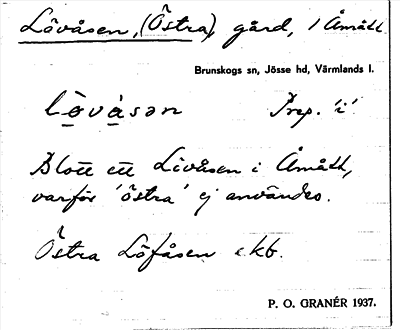 Lövåsen, (Östra), gård, i Åmått
Brunskogs sn, Jösse hd, Värmlands l.
lø̀våsən Prep. 'i'.
Blott ett Lövåsen i Åmått,
varför 'östra' ej användes.
Östra Löfåsen ekb.
P. O. GRANÉR 1937.